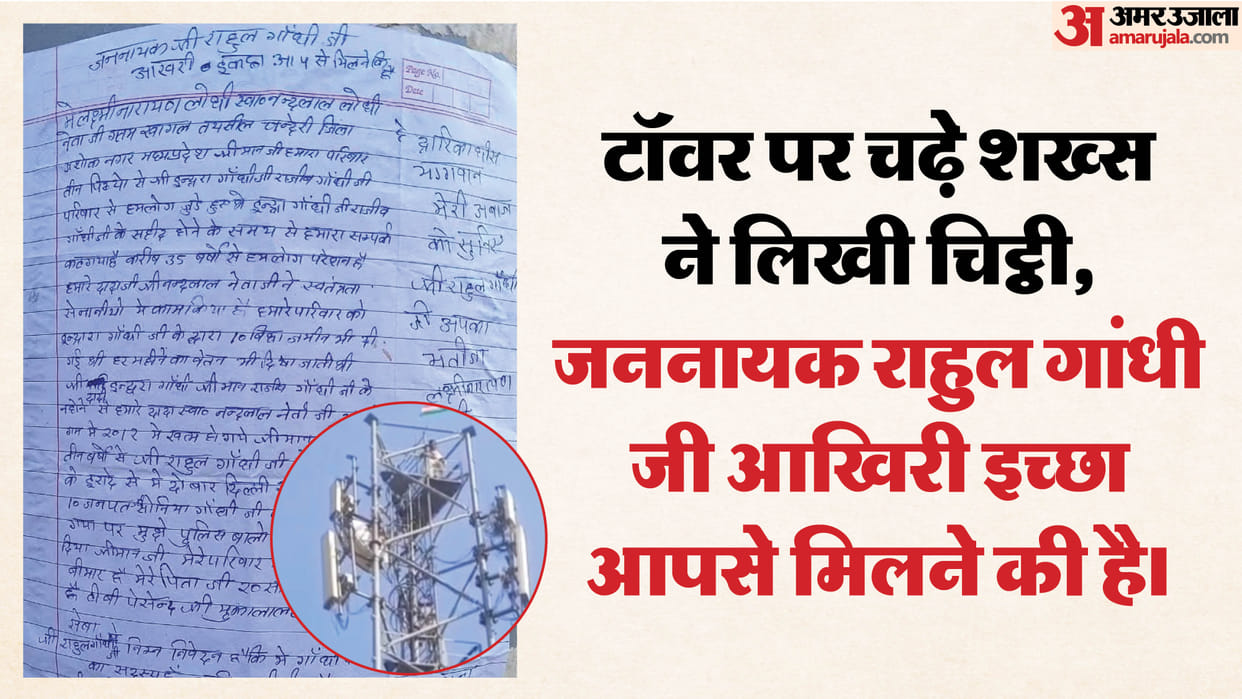 अमर उजाला
amarujala.com
टॉवर पर चढ़े शख्स
ने लिखी चिट्ठी,
जननायक राहुल गांधी
जी आखिरी इच्छा
आपसे मिलने की है।
जननायक जी राहुल गाँधी जी
आखरी इच्छा आप से मिलने कि है
Page No.
Date
मे लक्ष्मीनारायण लोधी स्वा० नन्दलाल लोधी
नेता जी ग्राम खागल तयसील चन्देरी जिला
अशोक नगर मध्यप्रदेश श्रीमान जी हमारा परिवार
तीन पिढ्यो से श्री इन्द्रा गाँधी जी राजीव गाँधी जी
परिवार से हमलोग जुडे हुए थे इन्द्रा गाँधी जी राजीव
गाँधी जी के सहीद होने के समय से हमारा सम्पर्क
कटगया है करीब 35 वर्षो से हमलोग परेशान है
हमारे दादाजी श्री नन्दलाल नेताजी ने स्वतंत्रता
सेनानीयो मे काम किया है हमारे परिवार को
इन्द्रारा गाँधी जी के द्वारा 10 बिघा जमीन भी दी
गई थी हर महीने का वेतन भी दिया जाता थी
श्री इन्द्ररा गाँधी श्री मान राजीव गाँधी जी के
नहोने से हमारे दादा स्वा० नन्दलाल नेता जी
मे 2012 मे खत्म हो गये श्रीमान
तीन वर्षो से श्री राहुल गाँधी जी
के इरादे से मे दो बार दिल्ली
10 जनपत सोनिया गाँधी जी
गया पर मुझे पुलिस बालो
दिया श्रीमान जी मेरे परिवार
बीमार है मेरे पिता जी
है टी बी पेसेन्ट श्री
सेवा
श्री राहुल गाँधी जी निम्न निवेदन है कि मे गाँधी
का सदस्य हूँ
हे द्वारिकाधीस
भगवान
मेरी अबाज
को सुनिए
श्री राहुल गाँधी
जी अपका
भतीजा
लक्ष्मीनारायण